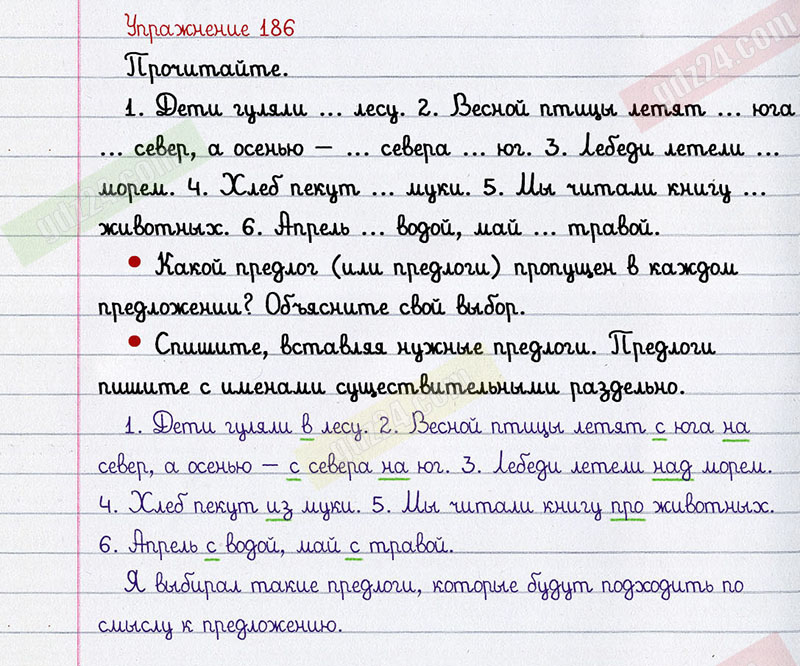 Упражнение 186
Прочитайте.
1. Дети гуляли ... лесу. 2. Весной птицы летят ... юга
... север, а осенью – ... севера ... юг. 3. Лебеди летели ...
морем. 4. Хлеб пекут ... муки. 5. Мы читали книгу ...
животных. 6. Апрель ... водой, май ... травой.
• Какой предлог (или предлоги) пропущен в каждом
предложении? Объясните свой выбор.
• Спишите, вставляя нужные предлоги. Предлоги
пишите с именами существительными раздельно.
1. Дети гуляли в лесу. 2. Весной птицы летят с юга на
север, а осенью – с севера на юг. 3. Лебеди летели над морем.
4. Хлеб пекут из муки. 5. Мы читали книгу про животных.
6. Апрель с водой, май с травой.
Я выбирал такие предлоги, которые будут подходить по
смыслу к предложению.
gdz24.com
gdz24.com
gdz24.com